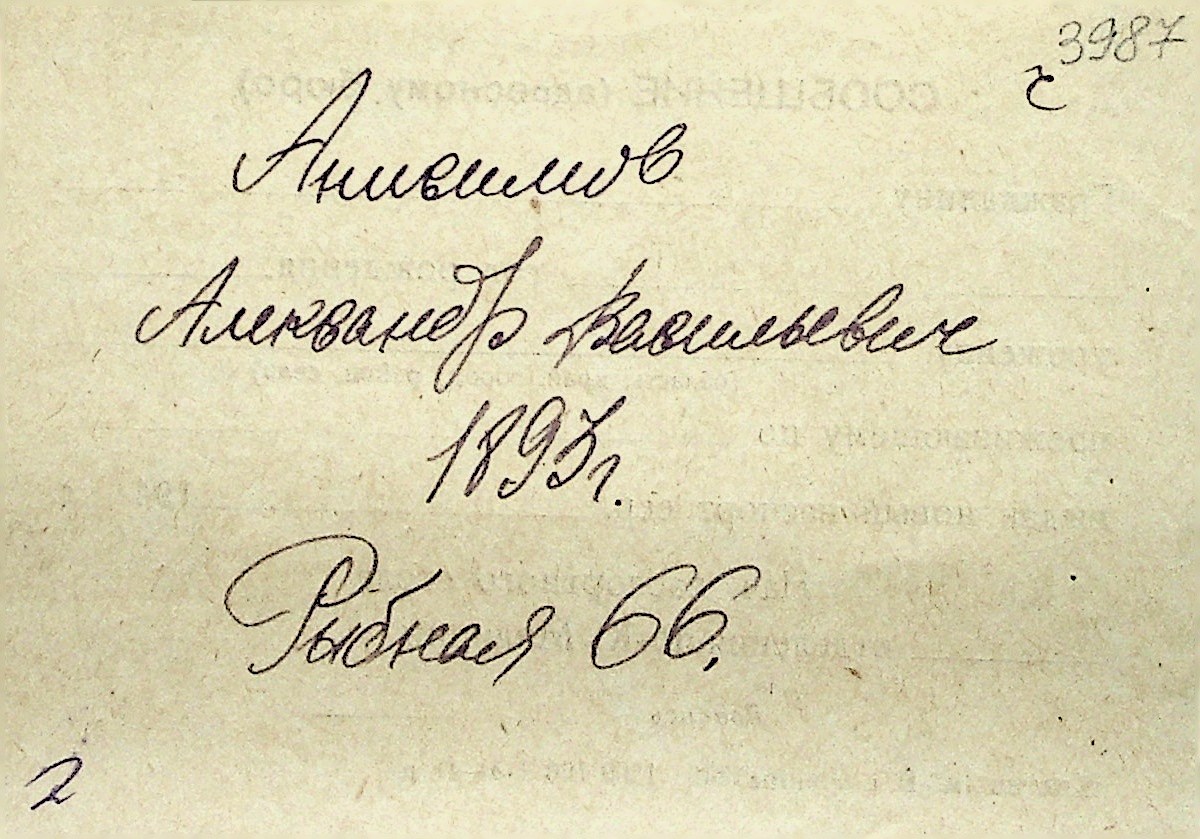 3987
Анисимов
Александр Васильевич
1893г.
Рыбная 66.
2